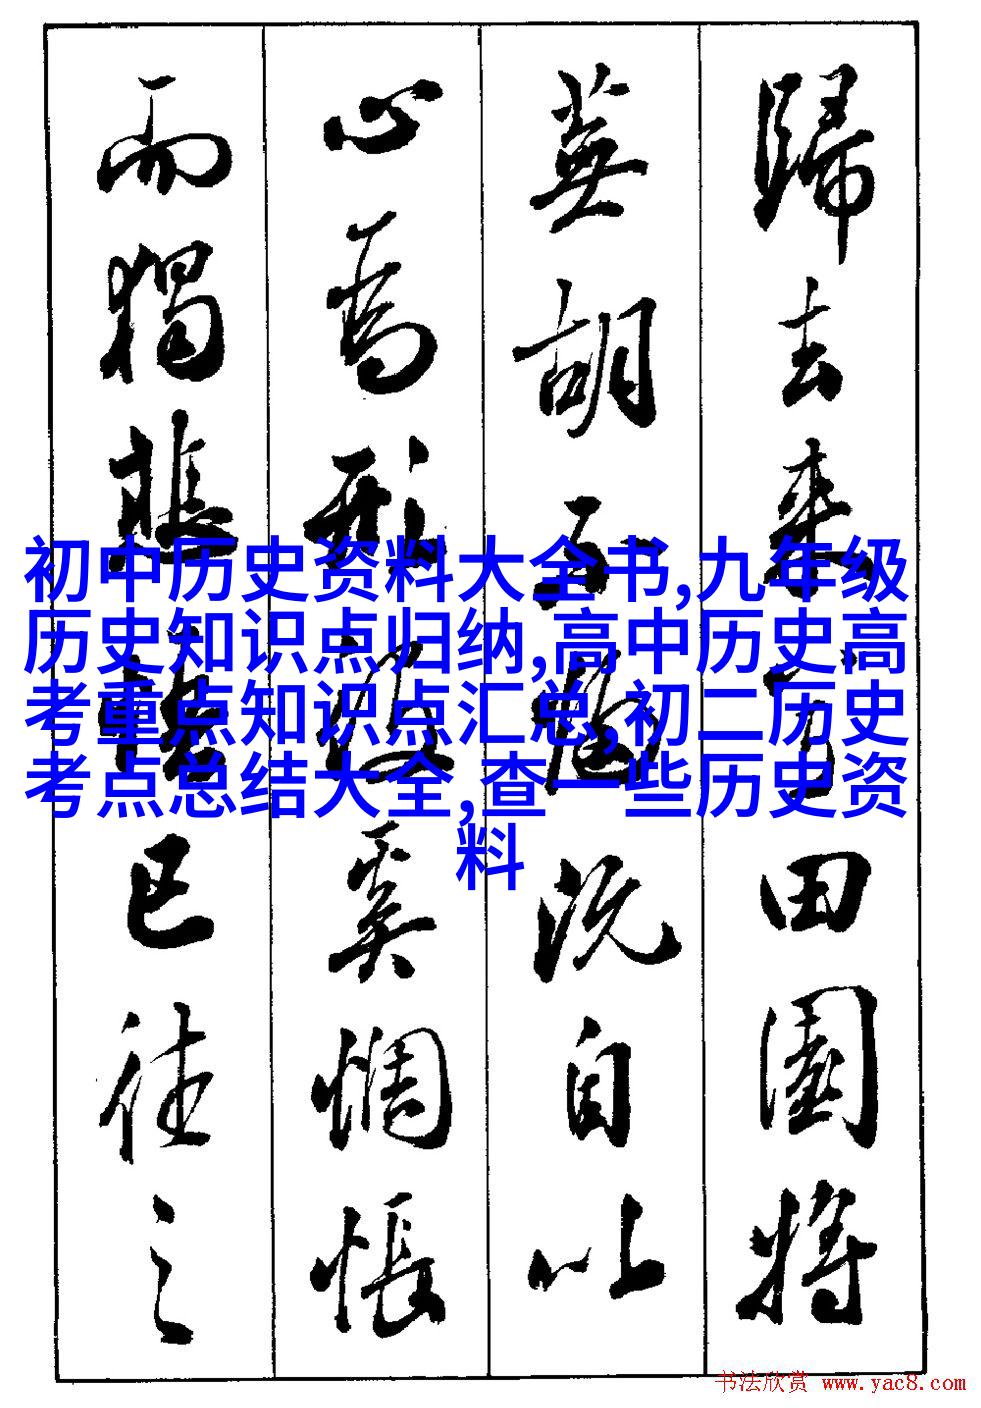 歸去来兮田園将
蕪胡不歸既自以
心為形役奚惆悵
而獨悲悟已往之
初中历史资料大全书,九年级
历史知识点归纳,高中历史高
考重点知识点汇总,初二历史
考点总结大全,查一些历史资
料
书法欣赏 www.yac8.com